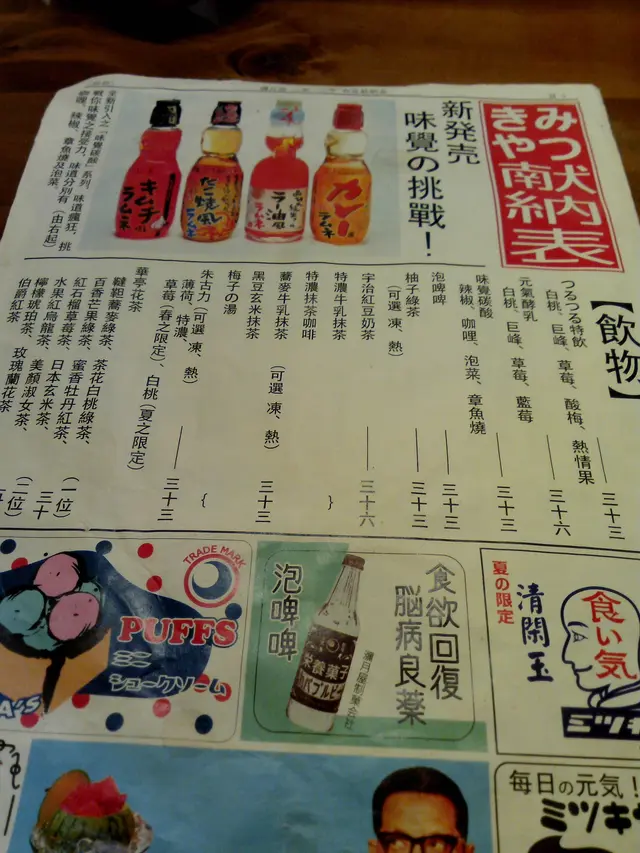 みつ犬納表
きや南納
新発売
味覺の挑戰！
全新引入之「味覺碳酸」系列，味道瘋狂，挑
戰你味覺之接受力。味道分別有（由右起）
咖喱、辣椒、章魚燒及泡菜。
カレー
ラムネ
ラー油風
ラムネ
たこ焼風
ラムネ
キムチ
ラムネ
【飲物】
つるつる特飲
白桃、巨峰、草莓、酸梅、熱情果 三十三
元氣酵乳
白桃、巨峰、草莓、藍莓 三十六
味覺碳酸
辣椒、咖哩、泡菜、章魚燒 三十三
泡啤啤 三十三
柚子綠茶
（可選 凍、熱） 三十三
宇治紅豆奶茶 三十六
特濃牛乳抹茶
特濃抹茶咖啡
蕎麥牛乳抹茶 （可選 凍、熱）
黑豆玄米抹茶 三十三
梅子の湯
朱古力（可選 凍、熱）
薄荷、特濃、
草莓（春之限定）、白桃（夏之限定） 三十三
華亭花茶
韃靼蕎麥綠茶、茶花白桃綠茶、
百香芒果綠茶、蜜香牡丹紅茶、
紅石榴草莓茶、日本玄米茶、
水果紅烏龍茶、美顏淑女茶、 （一位）三十
檸檬琥珀茶、玫瑰蘭花茶 （二位）
伯爵紅茶
TRADE MARK
PUFFS
ミニ
シュークリーム
A'S
食欲回復
脳病良薬
泡啤啤
満月屋制菓会社
栄養菓子
バブルビー
夏の限定
清閑玉
食い気
ミツキ
毎日の元気！
ミツキ